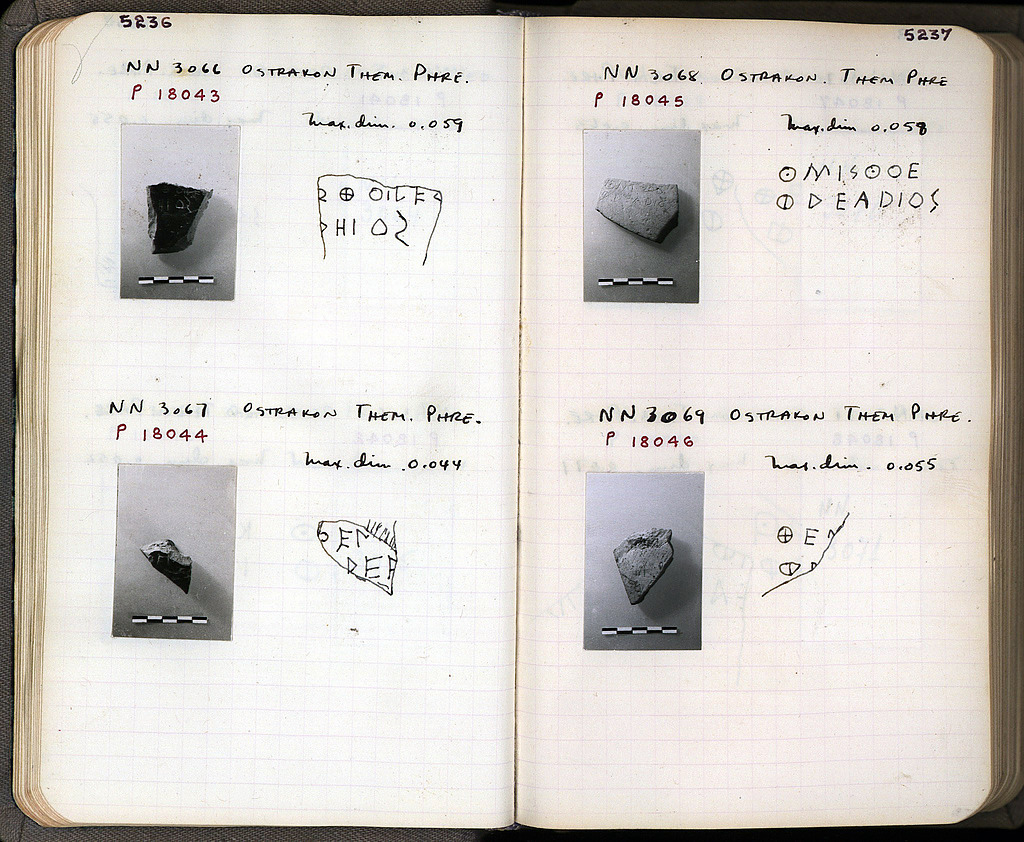 5236
NN 3066 OSTRAKON THEM. PHRE.
P 18043
Max. dim. 0.059
⊕ΟΙLΕ
ΗΙΟΣ
NN 3067 OSTRAKON THEM. PHRE.
P 18044
Max. dim. 0.044
ΕΓ
DΕΑ
5237
NN 3068 OSTRAKON. THEM PHRE
P 18045
Max. dim 0.058
⊙ΜΙSΘΟΕ
ΦDΕΑDΙΟS
NN 3069 OSTRAKON THEM PHRE.
P 18046
Max. dim. 0.055
⊕Ε
Φ